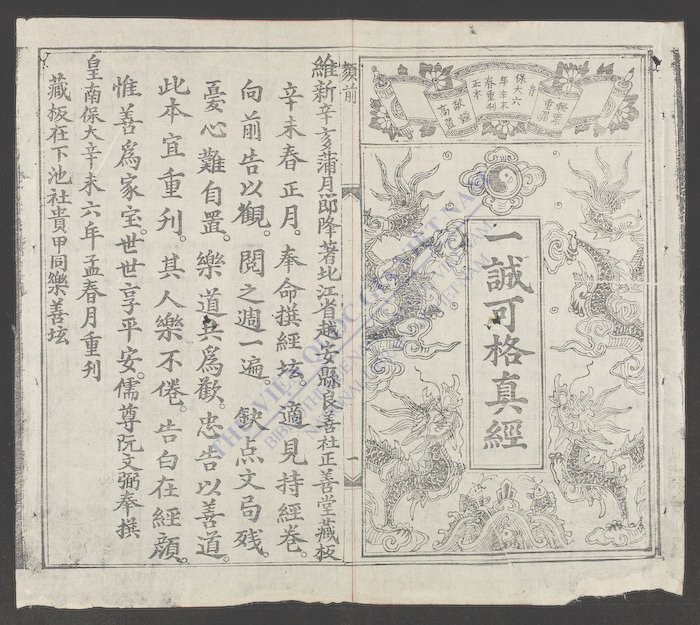 保大六
年辛未
春重刊
正本
一誠可格真經
顏前
維新辛亥蒲月郎降著北江省越安縣良善社正善堂藏板
辛未春正月。奉命撰經坛。適見持經卷。
向前告以觀。閱之週一遍。缺点文局残。
憂心難自置。樂道共為歡。忠告以善道。
此本宜重刊。其人樂不倦。告白在經顏。
惟善為家宝。世世享平安。儒尊阮文弼奉撰
皇南保大辛未六年孟春月重刊
藏板在下池社貴甲同樂善坛
一
THƯ VIỆN QUỐC GIA VIỆT NAM
NATIONAL LIBRARY OF VIETNAM